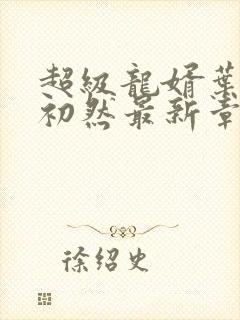 超級龍婿葉
初然最新章
徐绍史